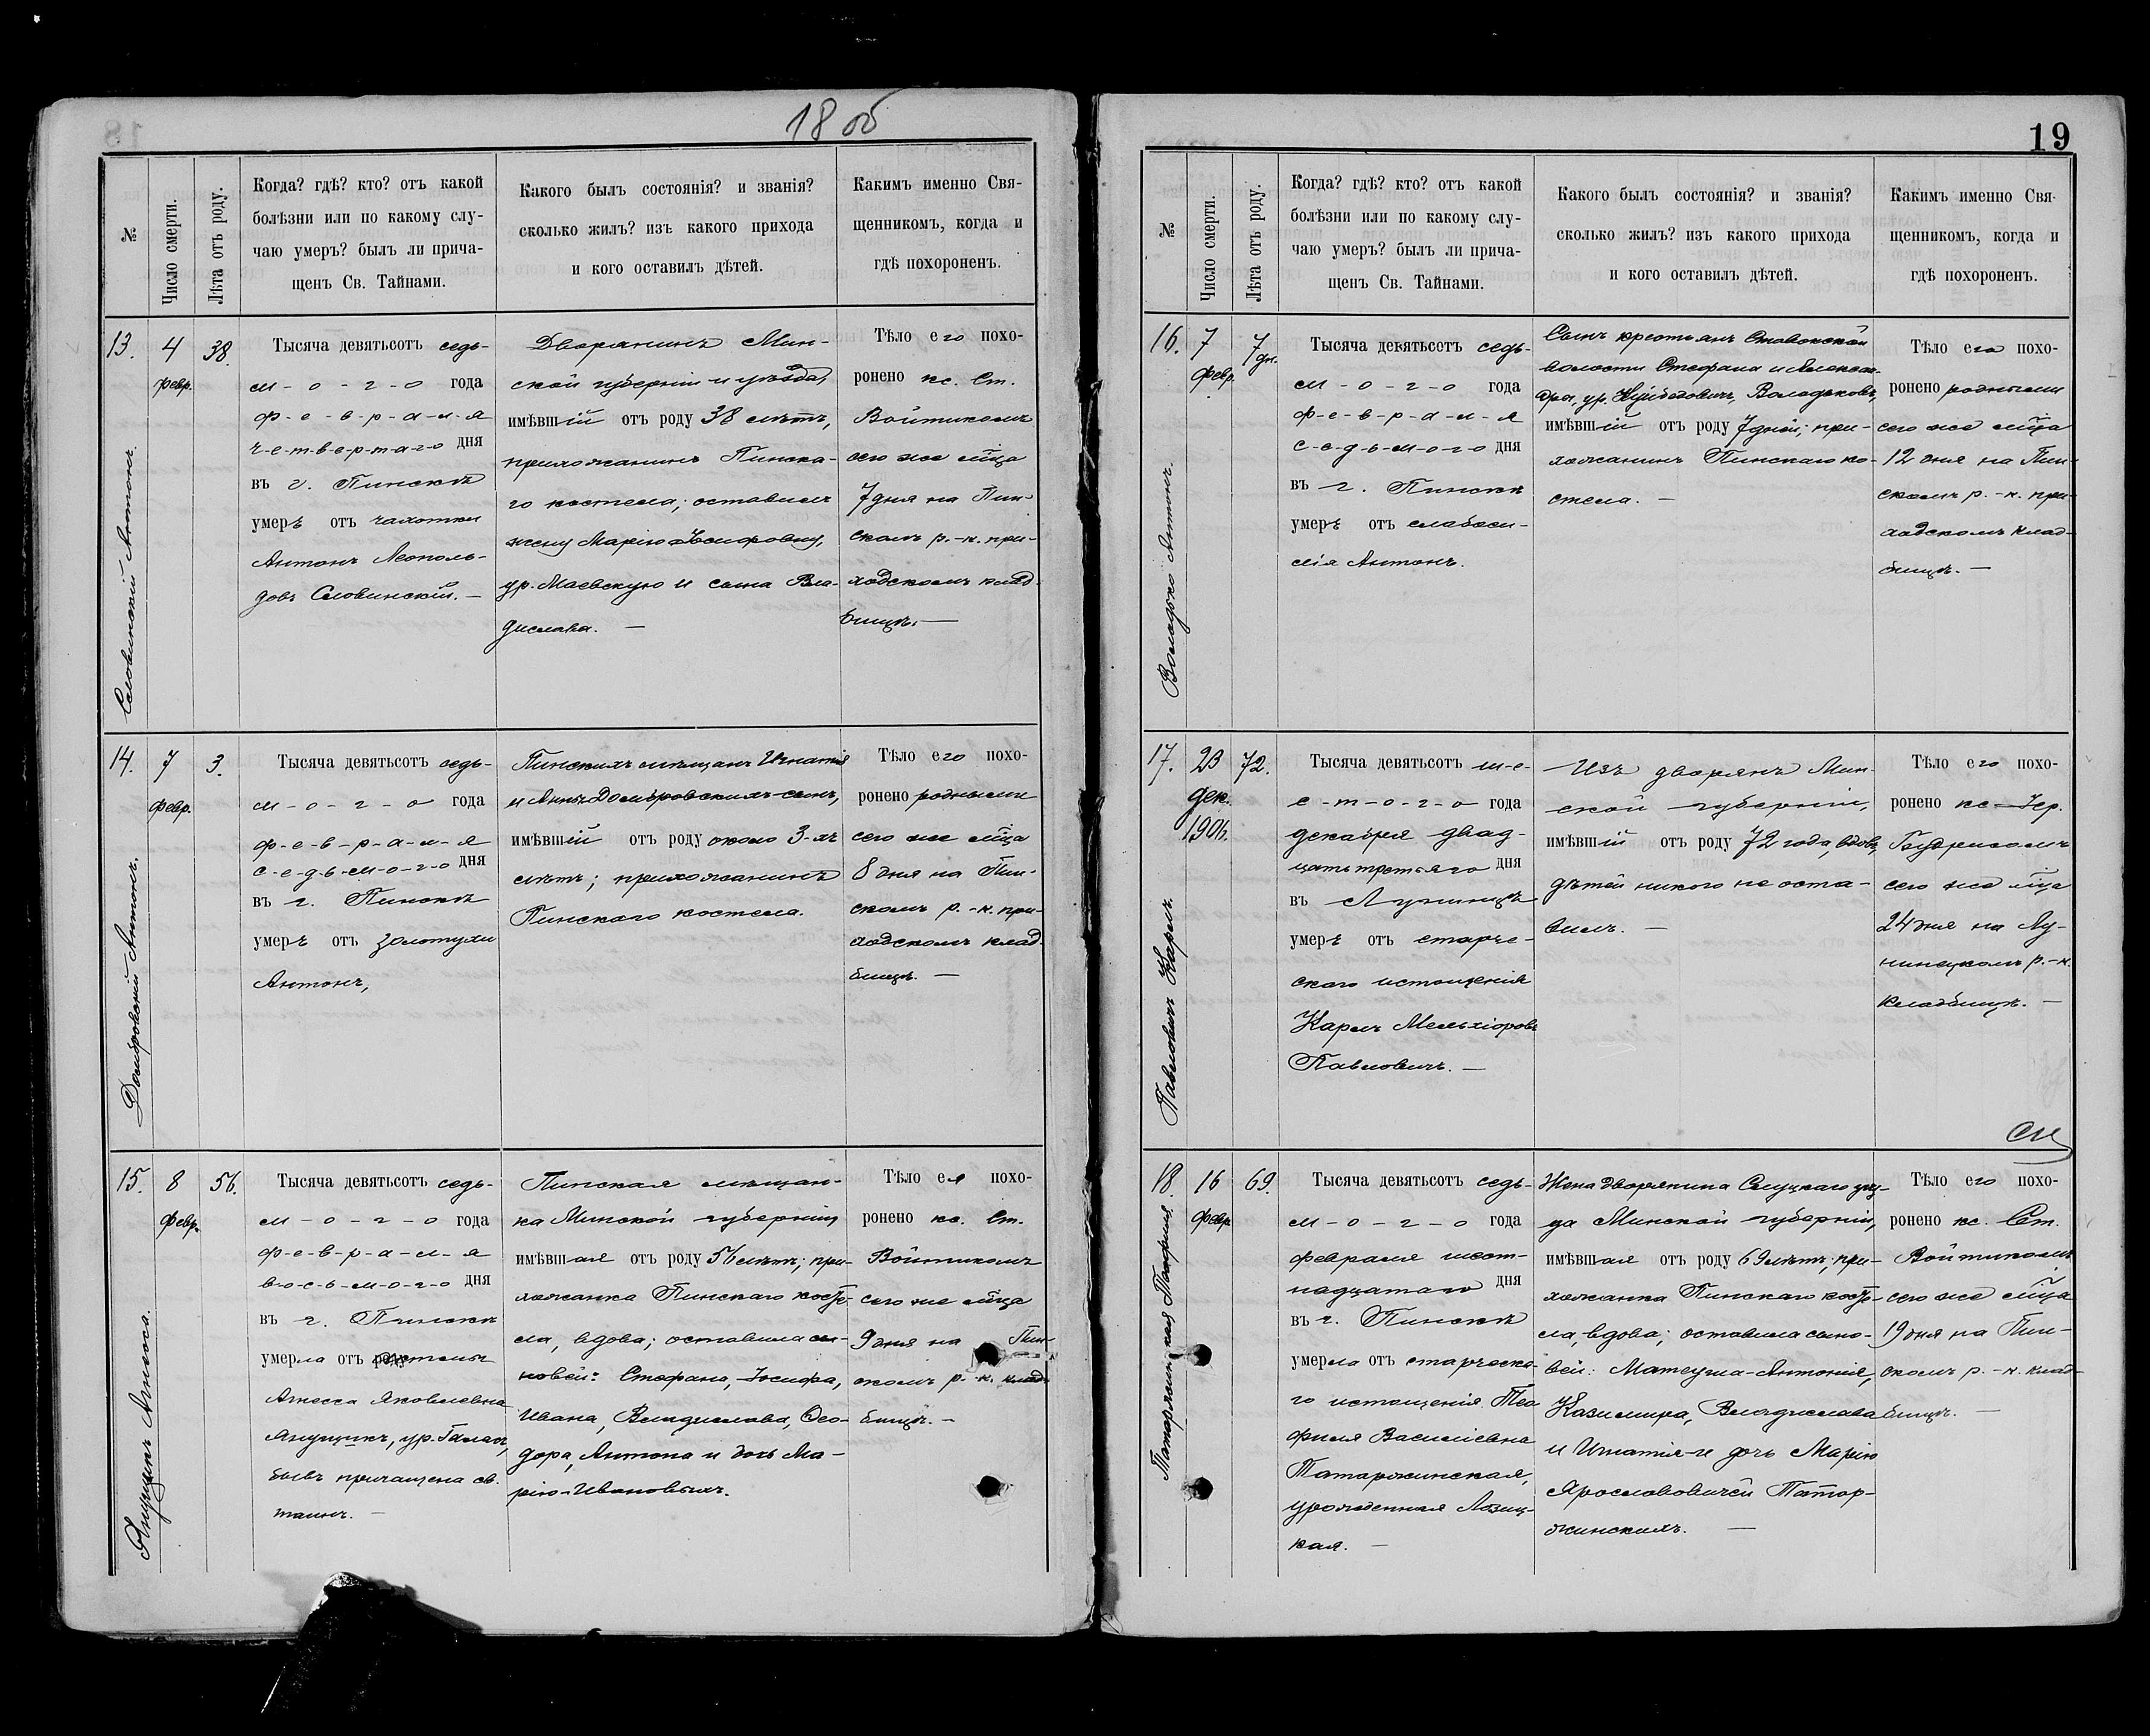 18 об
№
Число смерти.
Лѣта отъ роду.
Когда? гдѣ? кто? отъ какой
болѣзни или по какому слу-
чаю умеръ? былъ ли прича-
щенъ Св. Тайнами.
Какого былъ состоянія? и званія?
сколько жилъ? изъ какого прихода
и кого оставилъ дѣтей.
Какимъ именно Свя-
щенникомъ, когда и
гдѣ похороненъ.
13.
Словинскій Антонъ.
4
февр.
38.
Тысяча девятьсотъ седь-
м-о-г-о года
ф-е-в-р-а-л-я
ч-е-т-в-е-р-т-а-г-о дня
въ г. Пинскѣ
умеръ отъ чахотки
Антонъ Леополь-
довъ Словинскій. —
Дворянинъ Мин-
ской губерніи и уѣзда,
имѣвшій отъ роду 38 лѣтъ,
прихожанинъ Пинска-
го костела; оставилъ
жену Марію Іосифовну,
ур. Маевскую и сына Вла-
дислава. —
Тѣло его похо-
ронено кс. Ст.
Войтикомъ
сего же мѣца
7 дня на Пин-
скомъ р.-к. при-
ходскомъ клад-
бищѣ. —
14.
Домбровскій Антонъ.
7
февр.
3.
Тысяча девятьсотъ седь-
м-о-г-о года
ф-е-в-р-а-л-я
с-е-д-ь-м-о-г-о дня
въ г. Пинскѣ
умеръ отъ золотухи
Антонъ,
Пинскихъ мѣщанъ Игнатія
и Анны Домбровскихъ сынъ,
имѣвшій отъ роду около 3-хъ
лѣтъ; прихожанинъ
Пинскаго костела.
Тѣло его похо-
ронено родными
сего же мѣца
8 дня на Пин-
скомъ р.-к. при-
ходскомъ клад-
бищѣ. —
15.
Янущикъ Агнеса.
8
февр.
56.
Тысяча девятьсотъ седь-
м-о-г-о года
ф-е-в-р-а-л-я
в-о-с-ь-м-о-г-о дня
въ г. Пинскѣ
умерла отъ
Агнесса Яковлевна
Янущикъ, ур. Галахъ,
бывъ причащена св.
таинъ. —
Пинская мѣщан-
ка Минской губерніи,
имѣвшая отъ роду 56 лѣтъ; при-
хожанка Пинскаго косте-
ла, вдова; оставила сы-
новей: Стефана, Іосифа,
Ивана, Владислава, Ѳео-
дора, Антона и дочь Ма-
рію-Ивановыхъ.
Тѣло ея похо-
ронено кс. Ст.
Войтикомъ
сего же мѣца
9 дня на Пин-
скомъ р.-к. клад-
бищѣ. —
19
№
Число смерти.
Лѣта отъ роду.
Когда? гдѣ? кто? отъ какой
болѣзни или по какому слу-
чаю умеръ? былъ ли прича-
щенъ Св. Тайнами.
Какого былъ состоянія? и званія?
сколько жилъ? изъ какого прихода
и кого оставилъ дѣтей.
Какимъ именно Свя-
щенникомъ, когда и
гдѣ похороненъ.
16.
Володько Антонъ.
7
февр.
7 дн.
Тысяча девятьсотъ седь-
м-о-г-о года
ф-е-в-р-а-л-я
с-е-д-ь-м-о-г-о дня
въ г. Пинскѣ
умеръ отъ слабоси-
лія Антонъ.
Сынъ крестьянъ Ставокской
волости Стефана и Алексан-
дры, ур. Володьковъ,
имѣвшій отъ роду 7 дней; при-
хожанинъ Пинскаго ко-
стела. —
Тѣло его похо-
ронено родными
сего же мѣца
12 дня на Пин-
скомъ р.-к. при-
ходскомъ клад-
бищѣ. —
17.
Павловичъ Карлъ.
23
дек.
1906.
72.
Тысяча девятьсотъ ше-
с-т-о-г-о года
декабря двад-
цать третьяго дня
въ Лунинцѣ
умеръ отъ старче-
скаго истощенія
Карлъ Мельхіоровъ
Павловичъ. —
Изъ дворянъ Мин-
ской губерніи,
имѣвшій отъ роду 72 года, вдовъ,
дѣтей никого не оста-
вилъ. —
Тѣло его похо-
ронено кс. Іер.
Будрикомъ
сего же мѣца
24 дня на Лу-
нинецкомъ р.-к.
кладбищѣ. —
18.
Татаржинская Теофиля.
16
февр.
69.
Тысяча девятьсотъ седь-
м-о-г-о года
февраля шест-
надцатаго дня
въ г. Пинскѣ
умерла отъ старческа-
го истощенія Тео
филя Василіевна
Татаржинская,
урожденная Лозиц-
кая. —
Жена дворянина Слуцкаго уѣз-
да Минской губерніи,
имѣвшая отъ роду 69 лѣтъ; при-
хожанка Пинскаго косте-
ла, вдова; оставила сыно-
вей: Матеуша-Антонія,
Казимира, Владислава
и Игнатія-и дочь Марію
Ярославовичей Татар-
жинскихъ. —
Тѣло его похо-
ронено кс. Ст.
Войтикомъ
сего же мѣца
19 дня на Пин-
скомъ р.-к. клад-
бищѣ. —